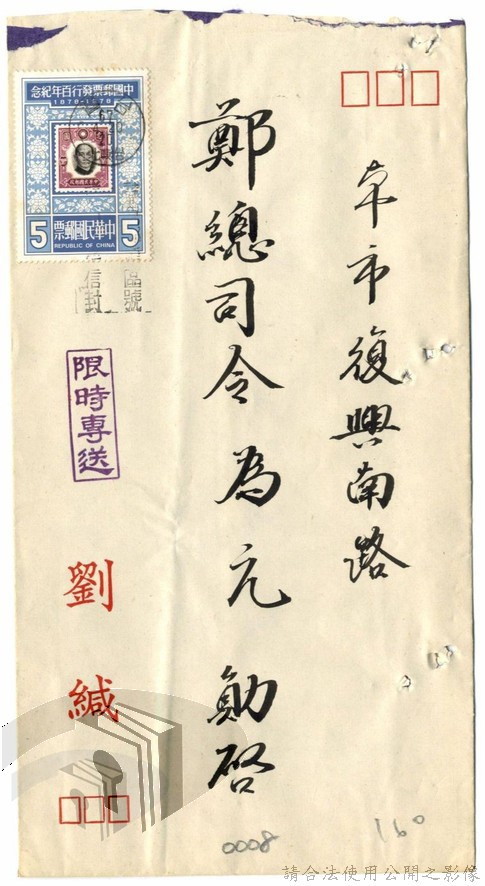 本市復興南路
鄭總司令為元 勛啓
念紀年百行發票郵國中
1878-1978
5 票郵國民華中 5
REPUBLIC OF CHINA
區號
信封
限時專送
劉緘
0008
160
請合法使用公開之影像